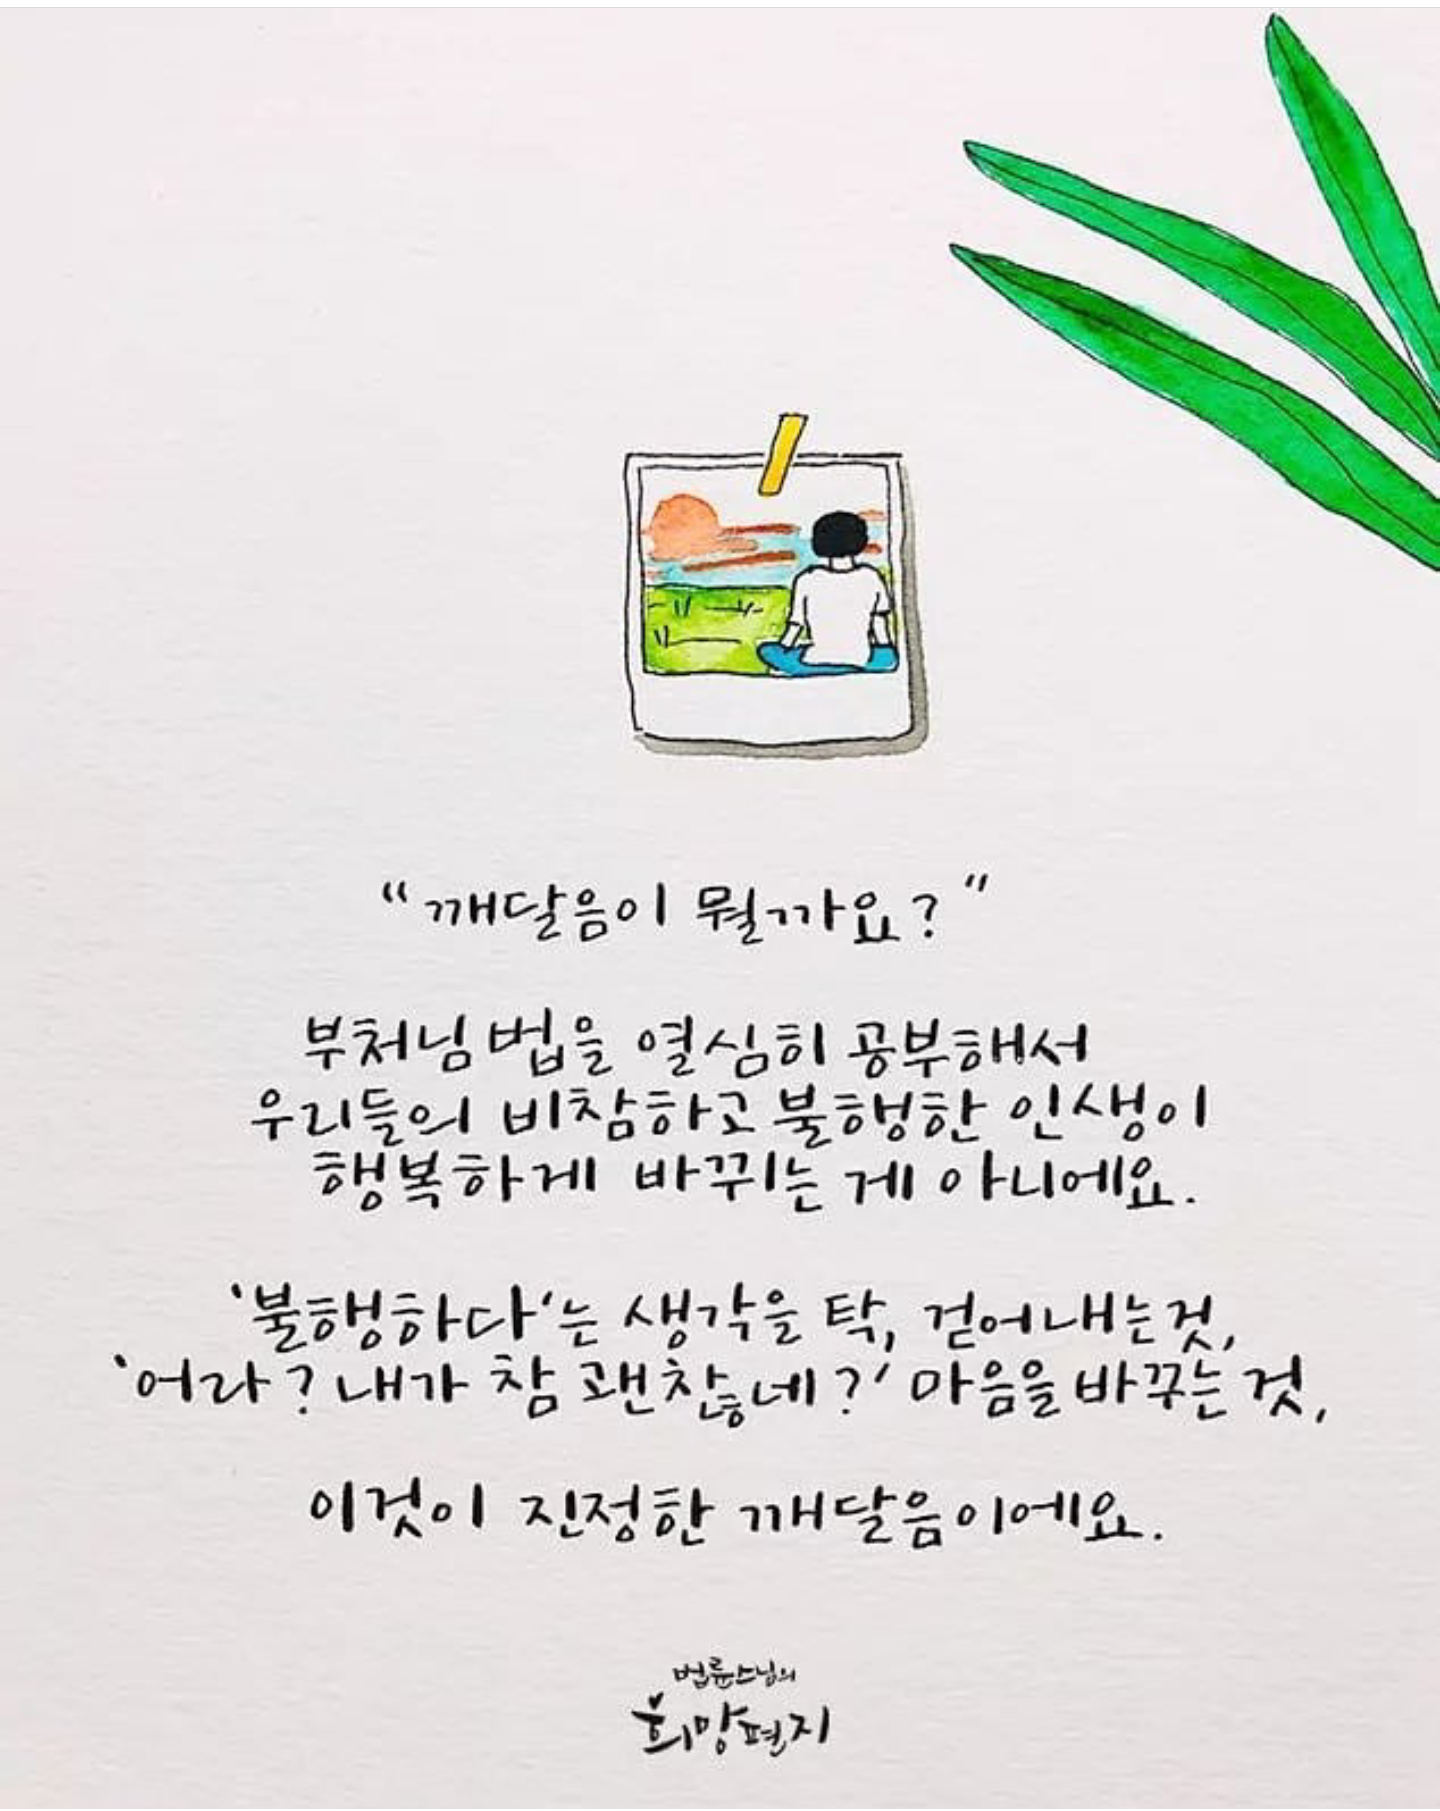 “깨달음이 뭘까요?”
부처님 법을 열심히 공부해서
우리들의 비참하고 불행한 인생이
행복하게 바뀌는 게 아니에요.
‘불행하다‘는 생각을 탁, 걷어내는것,
‘어라? 내가 참 괜찮네?’ 마음을 바꾸는 것,
이것이 진정한 깨달음이에요.
법륜스님의
희망편지